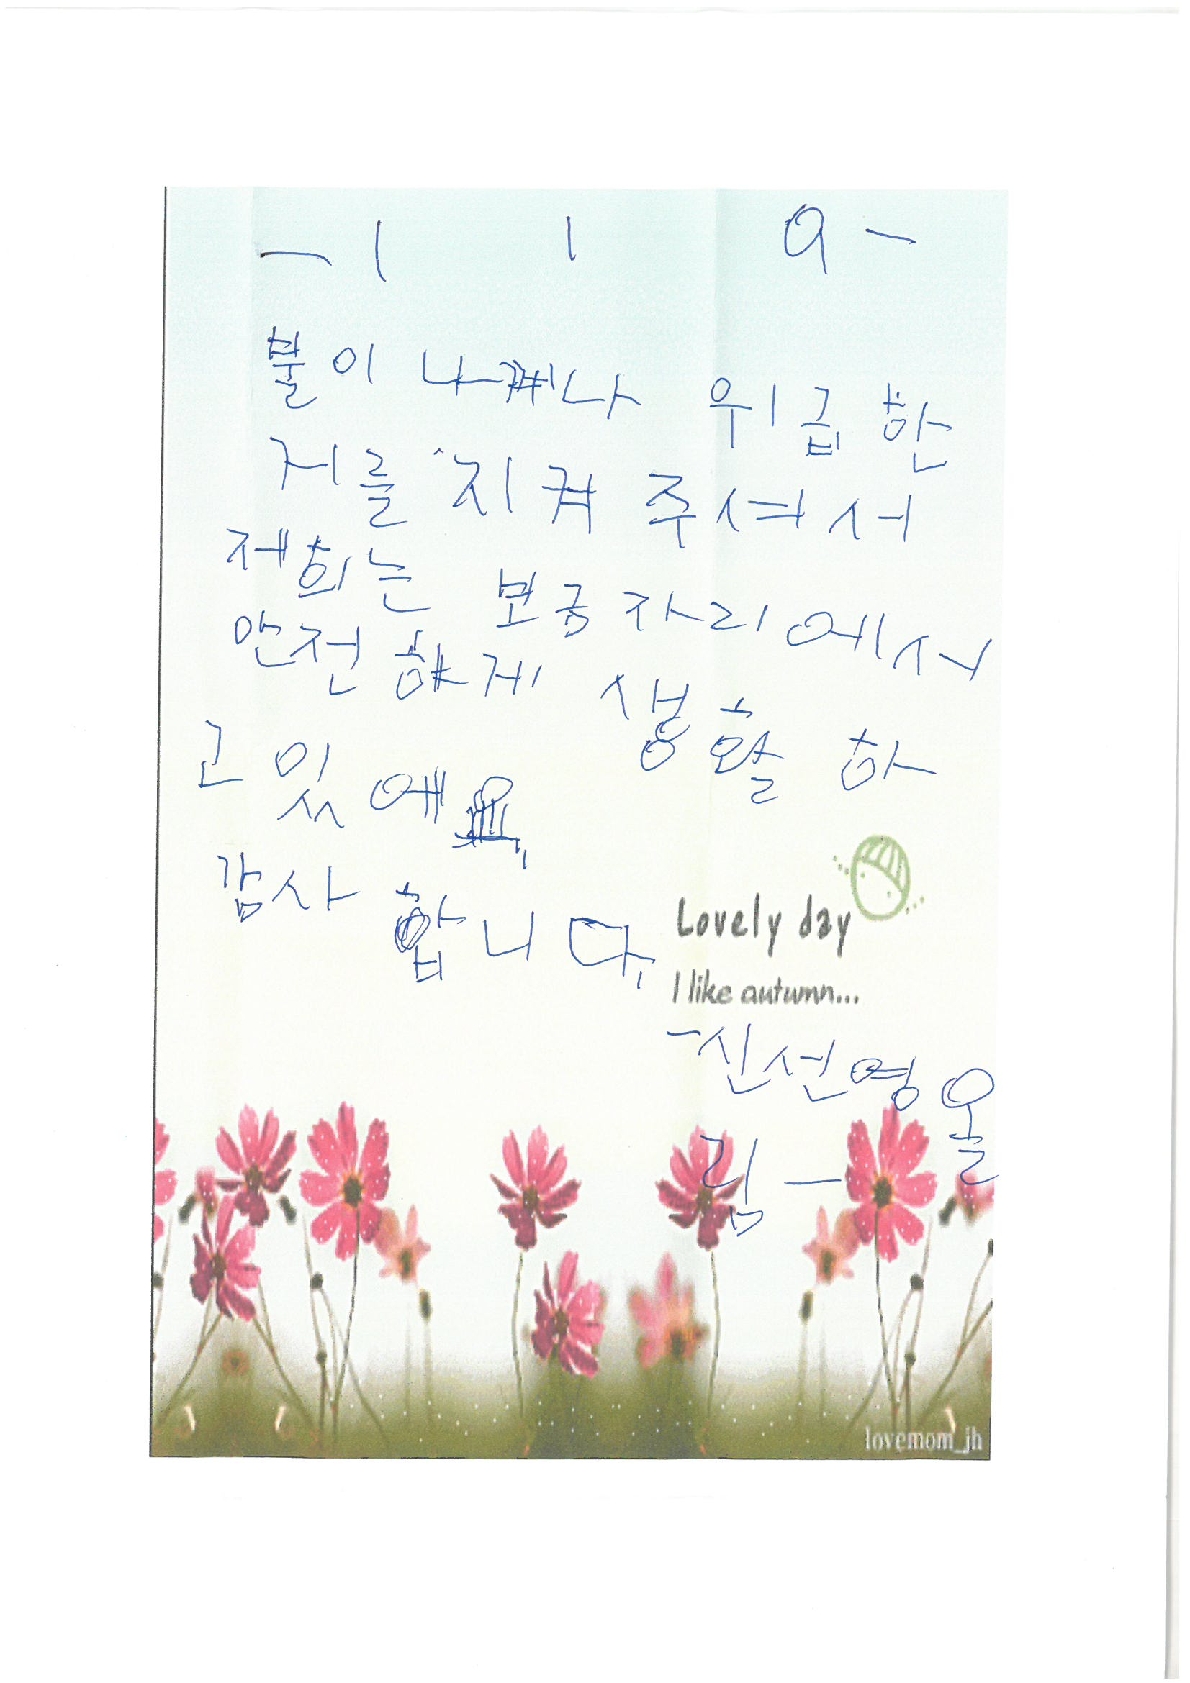 - 1 1 9 -
불이 나꼐나 위급한
거를 지켜 주셔서
저희는 보금자리에서
안전하게 생활 하
고 있에요,
감사 합니다,
Lovely day
I like autumn...
- 신선영 올
림 -
lovemom_jh